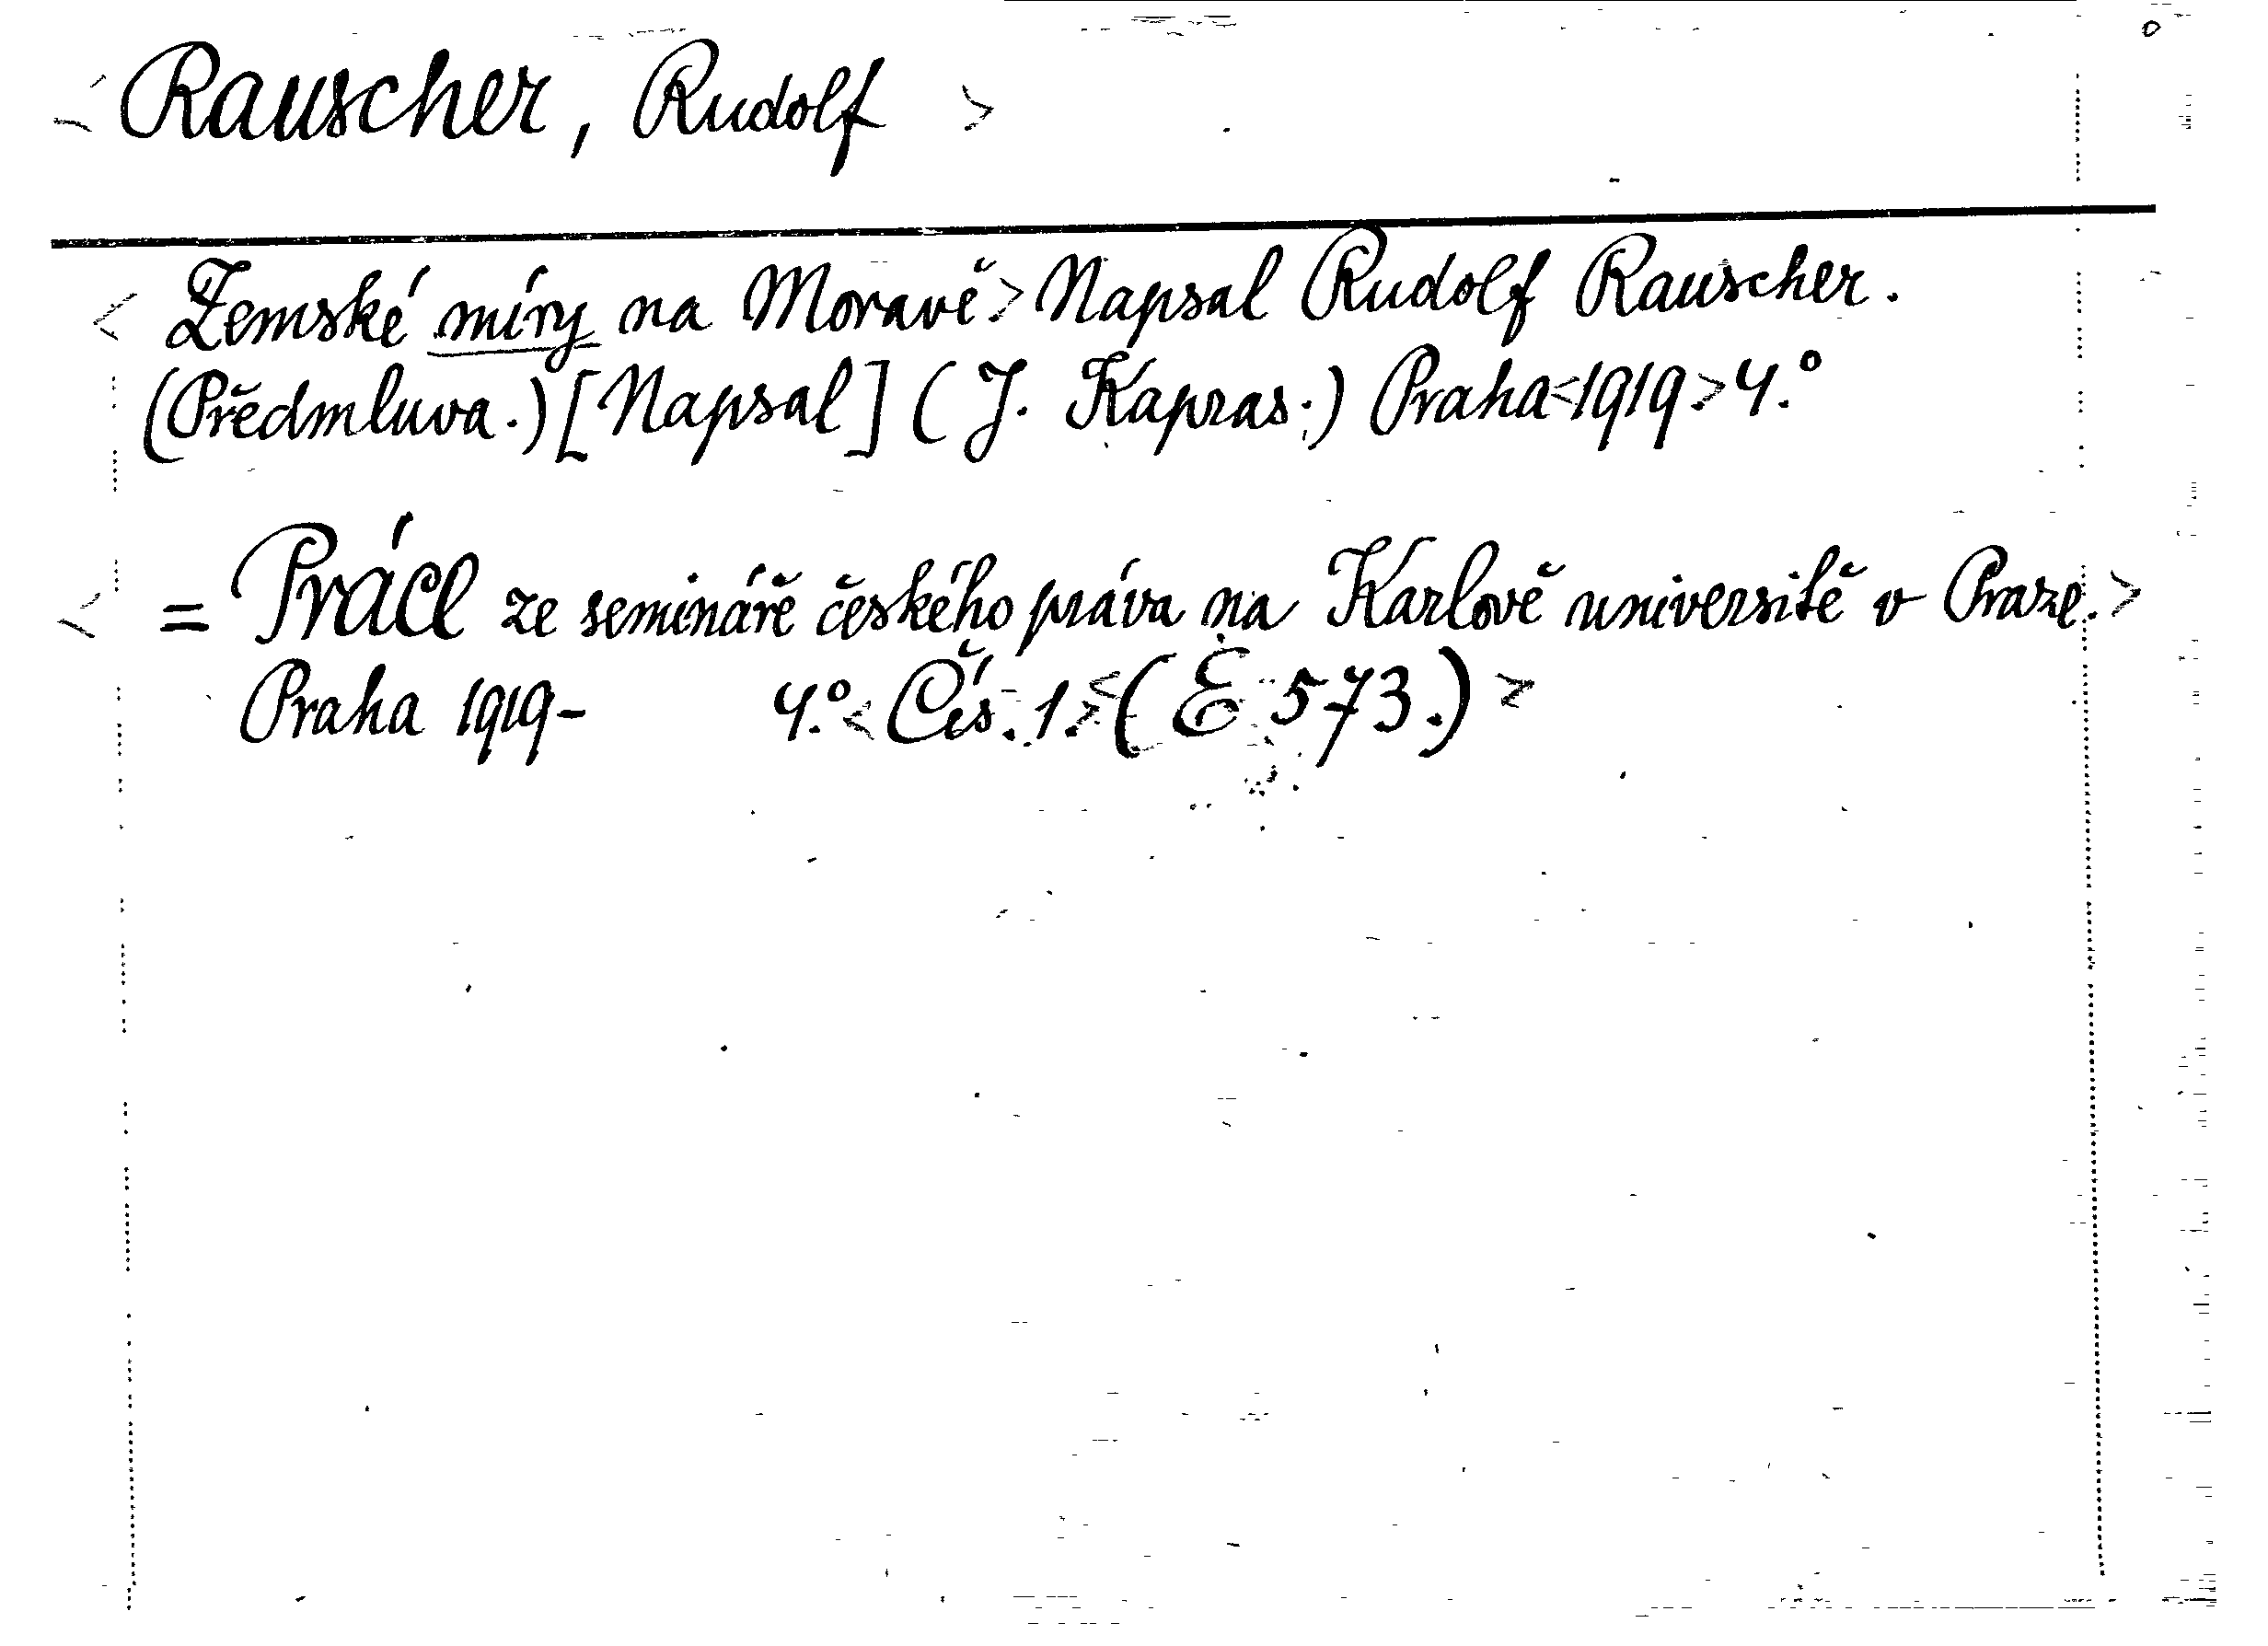 < Rauscher, Rudolf >
< Zemské míry na Moravě > Napsal Rudolf Rauscher.
(Předmluva.) [Napsal] (J. Kapras.) Praha < 1919 > 4.°
< = Práce ze semináře českého práva na Karlově universitě v Praze. >
Praha 1919- 4.° < Čís. 1. > < (E 573.) >